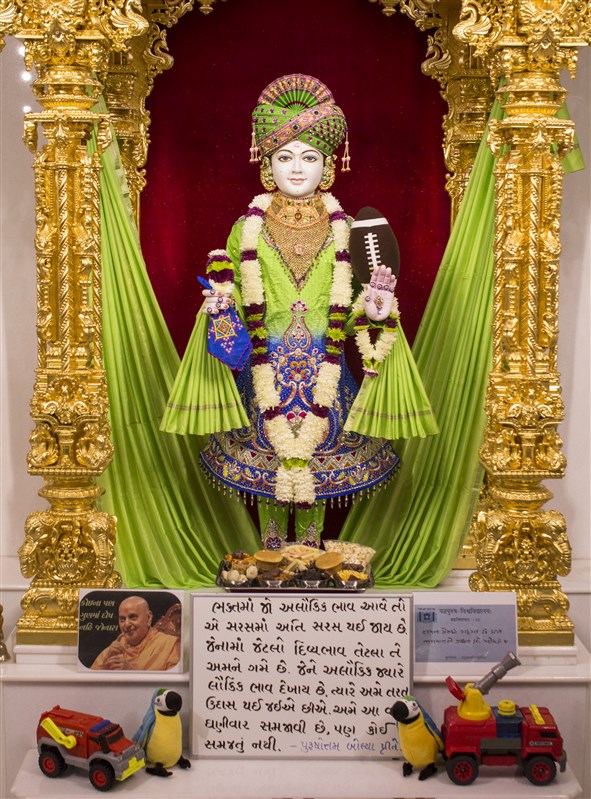 કોઈના પણ
ગુણમાં દોષ
નહિ જોનારા
ભક્તમાં જો અલૌકિક ભાવ આવે તો
એ સરસમાં અતિ સરસ થઈ જાય છે.
જેનામાં જેટલો દિવ્યભાવ તેટલા તે
અમને ગમે છે. જેને અલૌકિક જ્યારે
લૌકિક ભાવ દેખાય છે, ત્યારે અમે તરત
ઉદાસ થઈ જઈએ છીએ. અમે આ વાત
ઘણીવાર સમજાવી છે, પણ કોઈ
સમજતું નથી. - પુરુષોત્તમ બોલ્યા પ્રીતે